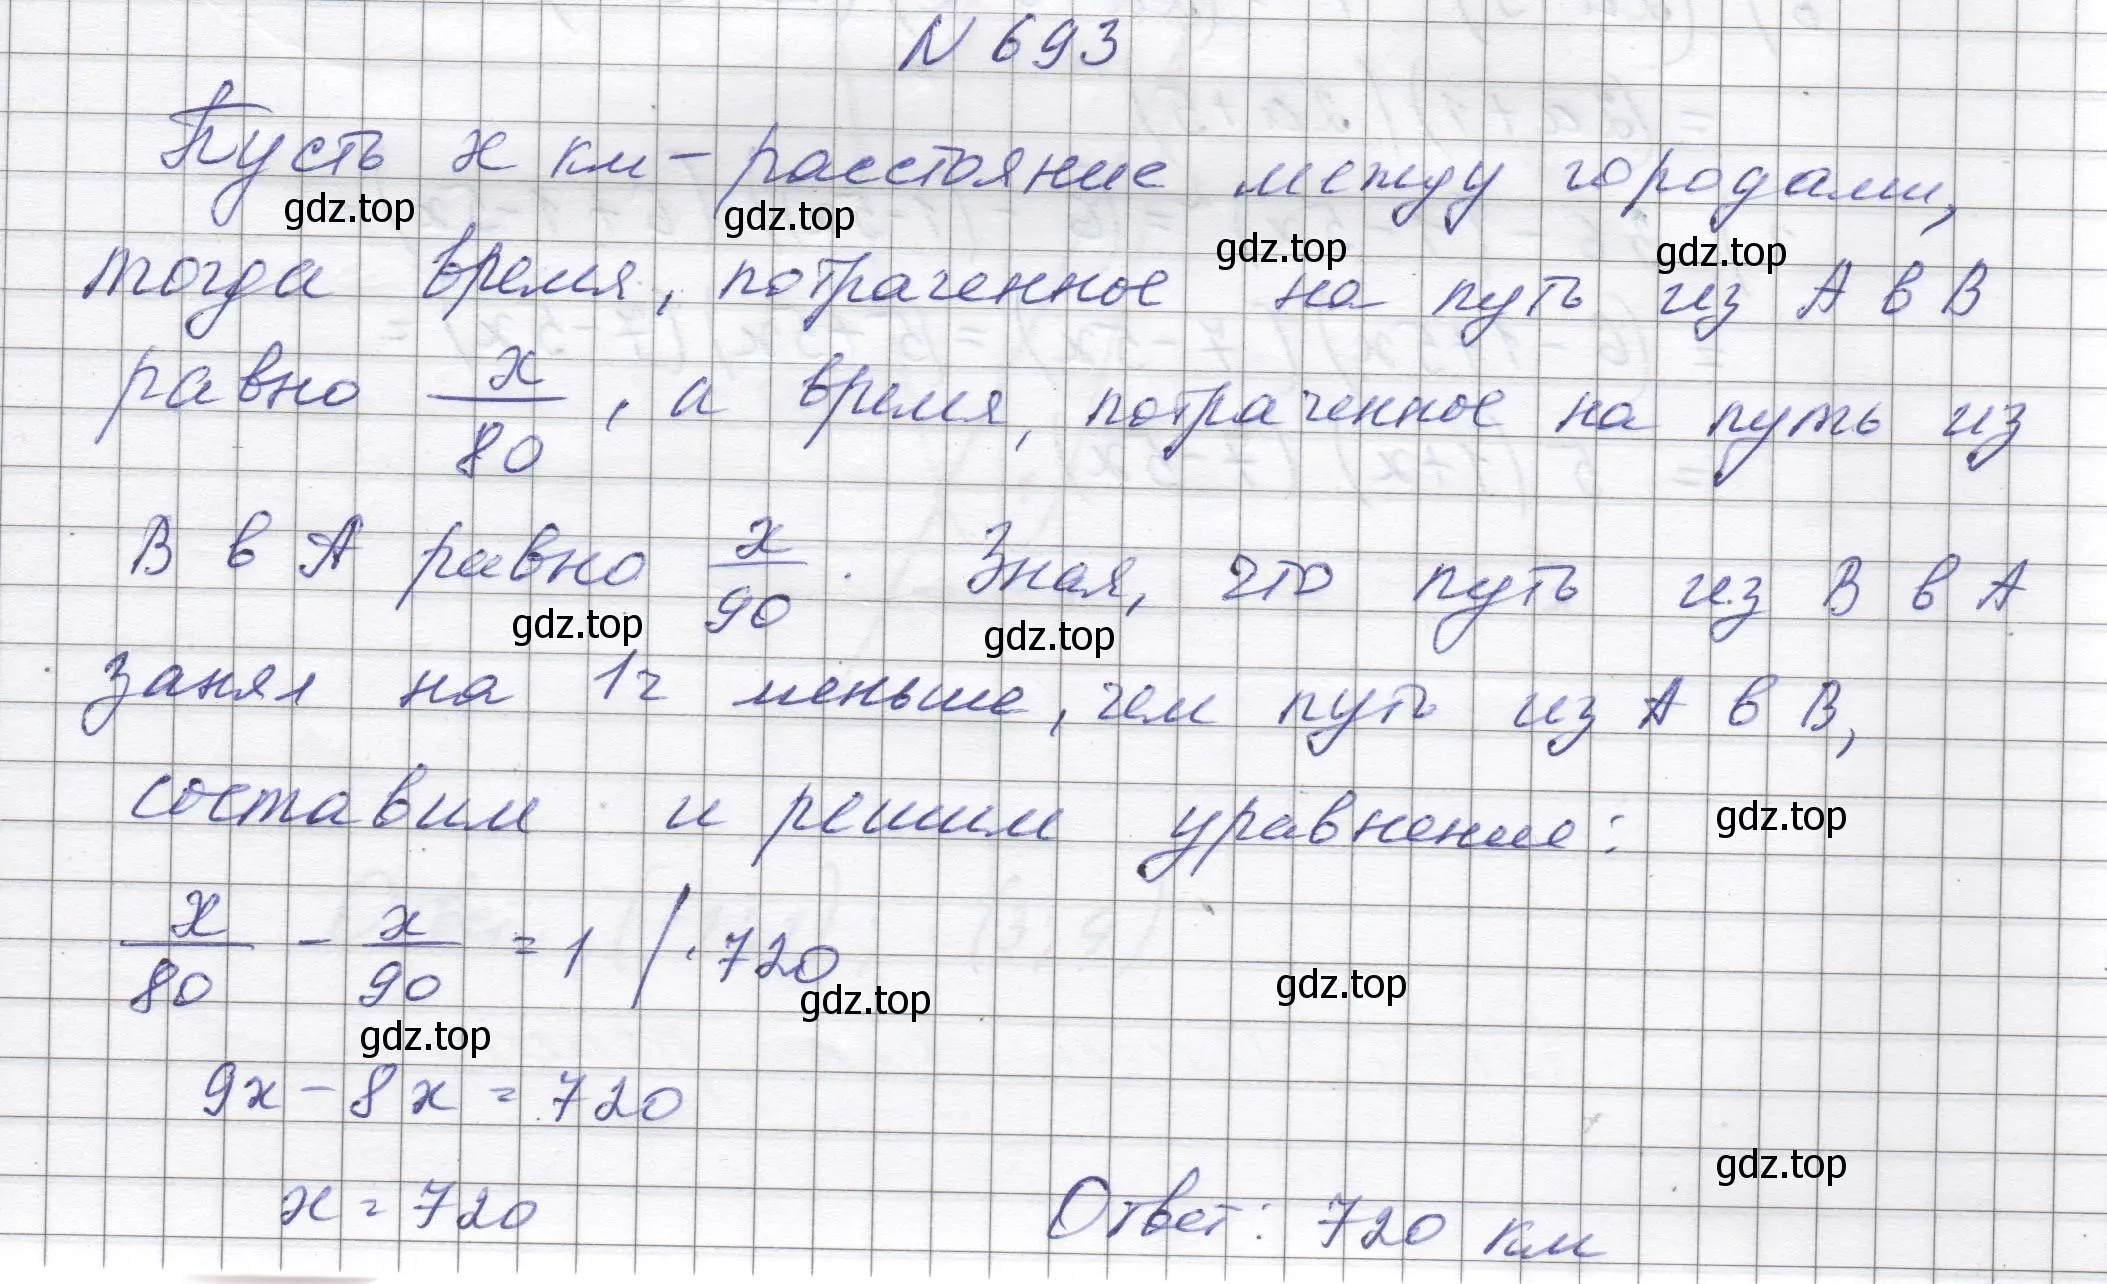 N 693
Пусть x км - расстояние между городами,
тогда время, потраченное на путь из A в B
равно x/80, а время, потраченное на путь из
B в A равно x/90. Зная, что путь из B в A
занял на 1ч меньше, чем путь из A в B,
составим и решим уравнение:
x/80 - x/90 = 1 | · 720
9x - 8x = 720
x = 720
Ответ: 720 км
gdz.top
gdz.top
gdz.top
gdz.top
gdz.top
gdz.top
gdz.top
gdz.top
gdz.top
gdz.top
gdz.top